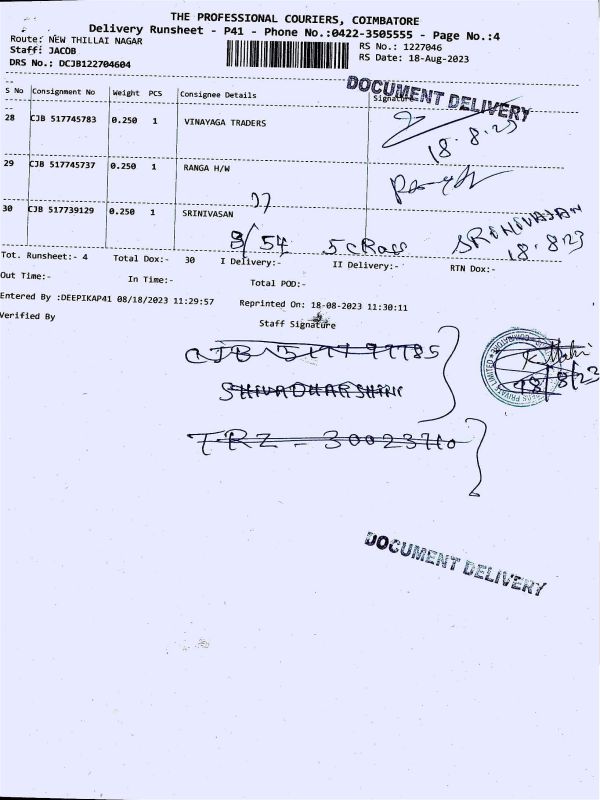 THE PROFESSIONAL COURIERS, COIMBATORE
Delivery Runsheet - P41 - Phone No.:0422-3505555 - Page No.:4
Route: NEW THILLAI NAGAR
Staff: JACOB
DRS No.: DCJB122704604
RS No.: 1227046
RS Date: 18-Aug-2023
DOCUMENT DELIVERY
S No Consignment No Weight PCS Consignee Details Signature
28 CJB 517745783 0.250 1 VINAYAGA TRADERS
18.8.23
29 CJB 517745737 0.250 1 RANGA H/W
30 CJB 517739129 0.250 1 SRINIVASAN
8/54 5 CRoss SRINIVASAN
18.8.23
Tot. Runsheet:- 4 Total Dox:- 30 I Delivery:- II Delivery:- RTN Dox:-
Out Time:- In Time:- Total POD:-
Entered By :DEEPIKAP41 08/18/2023 11:29:57 Reprinted On: 18-08-2023 11:30:11
Verified By Staff Signature
SHIVADHARSHINI
TRZ - 30023710
18/8/23
DOCUMENT DELIVERY